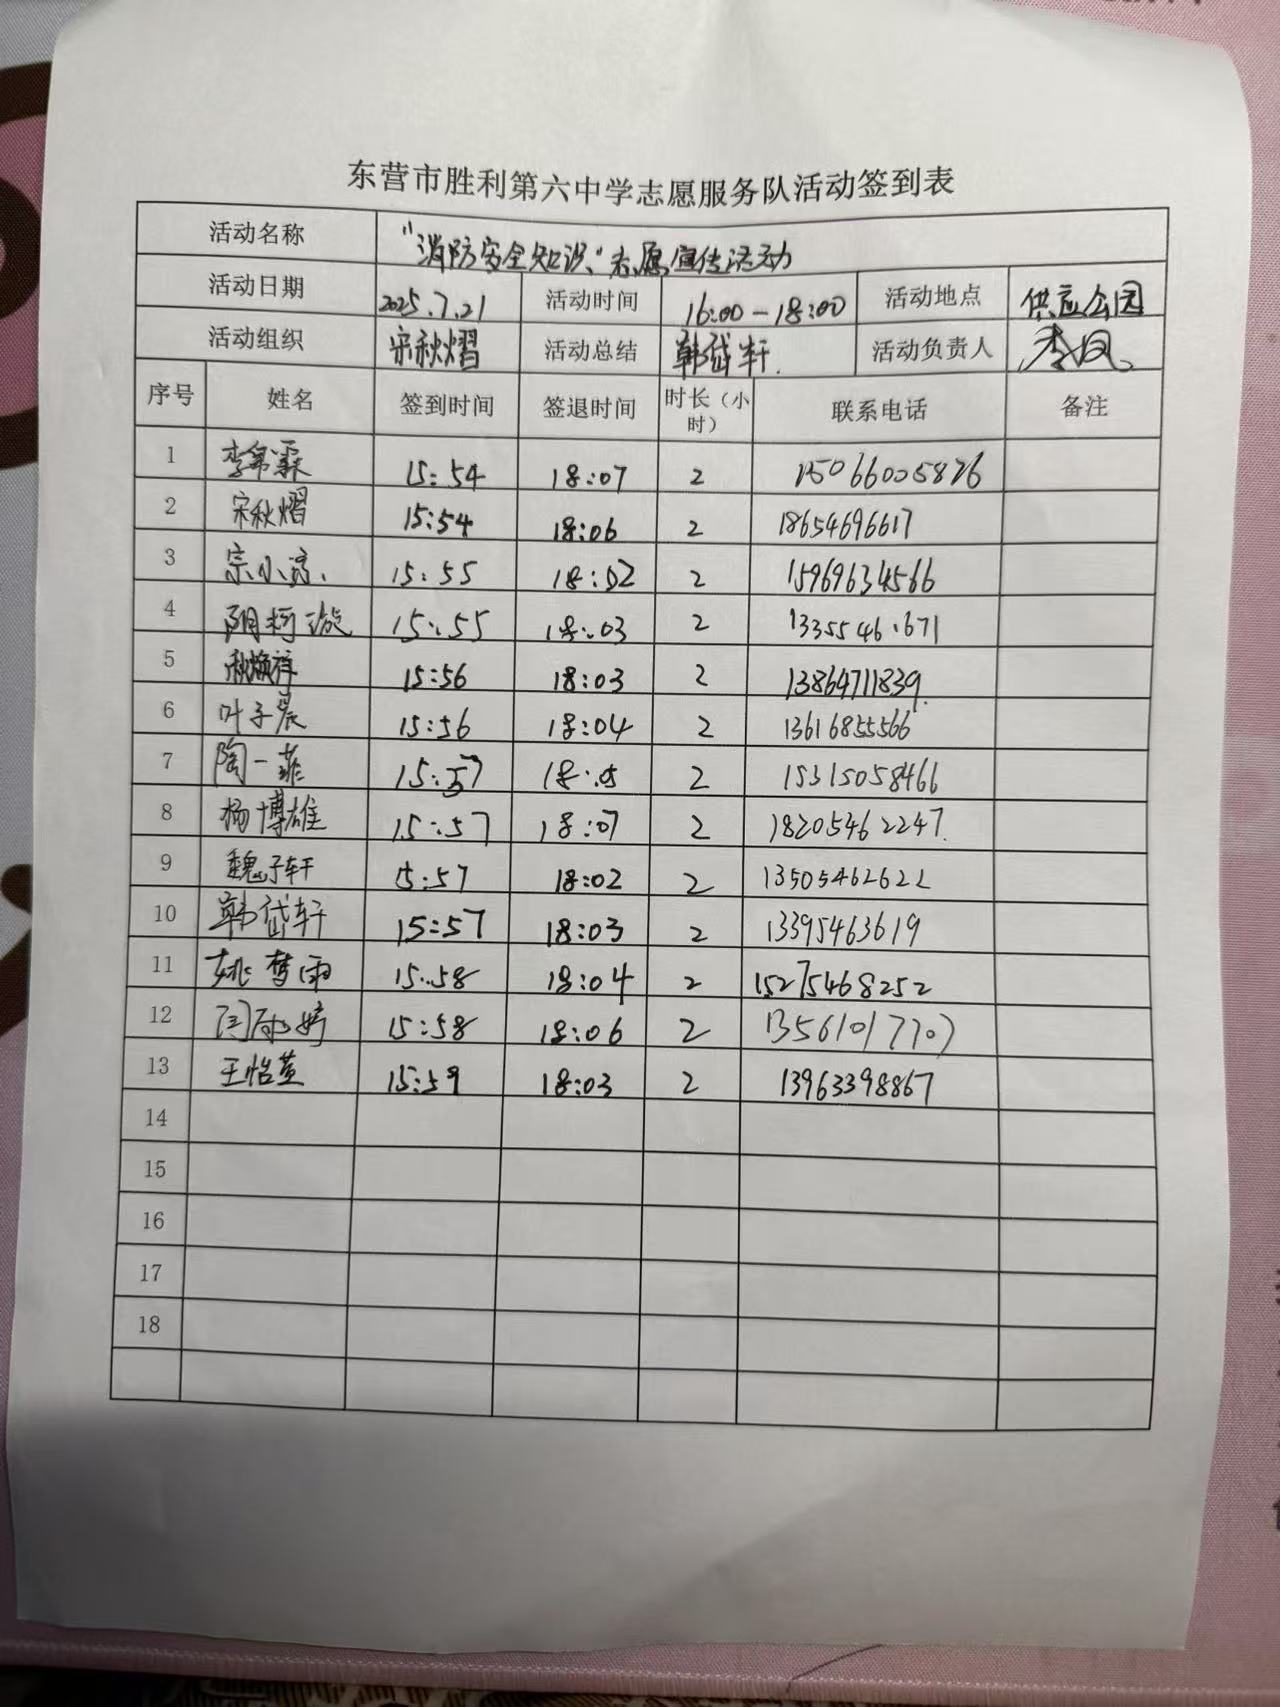 东营市胜利第六中学志愿服务队活动签到表
活动名称 “消防安全知识”志愿宣传活动
活动日期 2025.7.21 活动时间 16:00-18:00 活动地点 供应公园
活动组织 宋秋熠 活动总结 韩岱轩. 活动负责人 李凤
序号 姓名 签到时间 签退时间 时长（小时） 联系电话 备注
1 15:54 18:07 2 15066005876
2 宋秋熠 15:54 18:06 2 18654696617
3 15:55 18:02 2 15969634566
4 15:55 18:03 2
5 15:56 18:03 2 13864711839.
6 叶子晨 15:56 18:04 2 13616855566
7 陶一菲 15:57 18:05 2 15315058466
8 杨博雄 15:57 18:07 2 18205462247.
9 魏子轩 15:57 18:02 2 13505462622
10 韩岱轩 15:57 18:03 2 13395463619
11 姚梦雨 15:58 18:04 2 15275468252
12 15:58 18:06 2 13561017707
13 王怡萱 15:59 18:03 2 13963398867
14
15
16
17
18